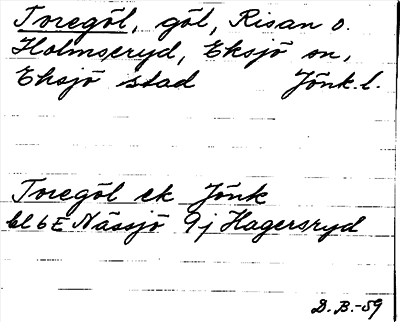 Toregöl, göl, Risan o.
Holmseryd, Eksjö sn,
Eksjö stad Jönk. l.
Toregöl ek Jönk
bl 6E Nässjö 9j Hagersryd
D.B.-59